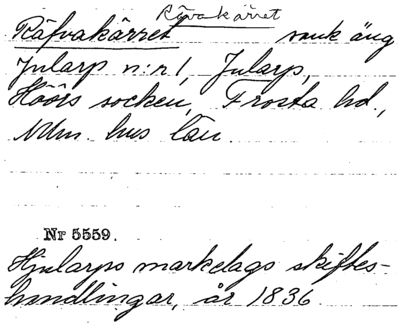 Räfvakärret
Räfvakärret sank äng
Jularp n:r 1, Jularp,
Höörs socken, Frosta hd.,
Mlm. hus län.
Nr 5559.
Hjularps markelags skiftes-
handlingar, år 1836.